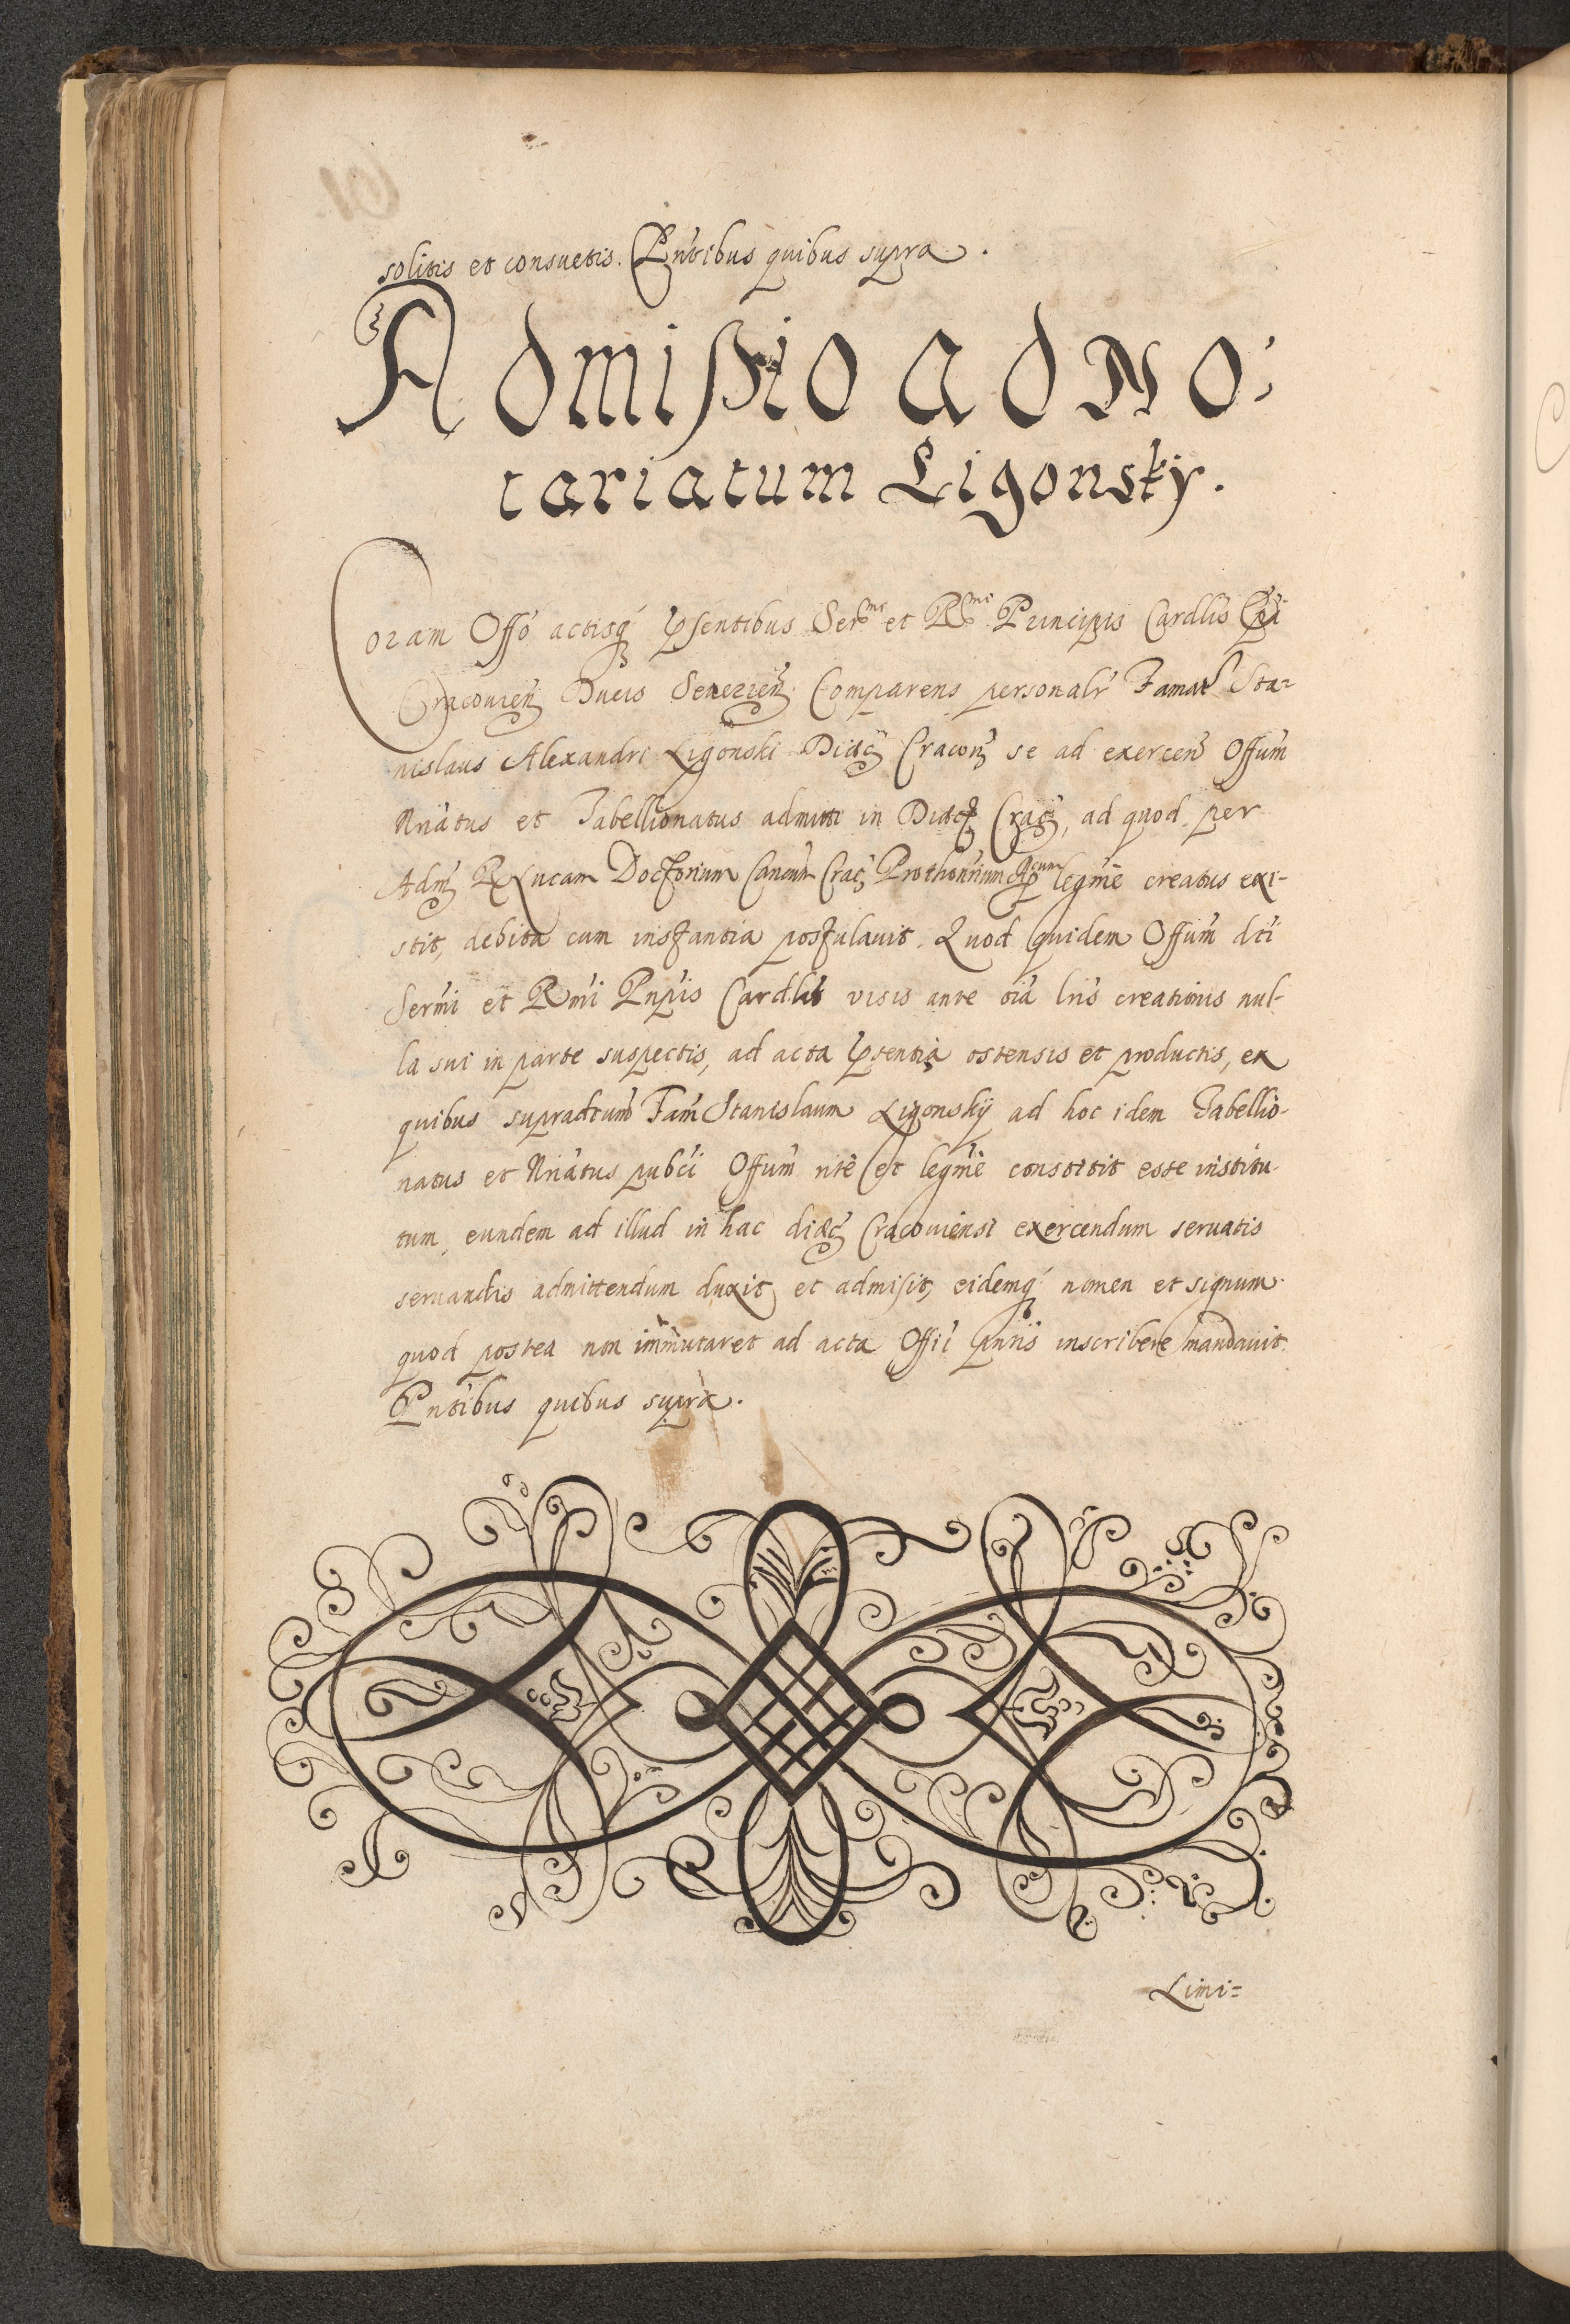 solitis et consuetis. Pntibus quibus supra.
Admißio ad No:
tariatum Ligonsky.
Coram Offo actisq psentibus Sermi et Rmi Principis Cardlis Epi
Cracovien Ducis Severien Comparens personalr Famat Sta=
nislaus Alexandri Ligonski Diæc Cracon se ad exercen Offum
Nriatus et Tabellionatus admitti in Diæc Crac, ad quod per
Adm R Lucam Doctorium Cancum Crac Prothonrium Apcum legme creatus exi-
stit, debita cum instantia postulauit. Quod quidem Offum dti
Sermi et Rmi Pnpis Cardlis visis ante oia lris creationis nul-
la sui in parte suspectis, ad acta psentia ostensis et productis, ex
quibus supradtum Fam Stanislaum Ligonskÿ ad hoc idem Tabellio-
natus et Nriatus pubci Offum rite et legme constitit esse institu-
tum, eundem ad illud in hac diæc Cracouiensi exercendum seruatis
seruandis admittendum duxit, et admisit, eidemq nomen et signum
quod postea non immutaret ad acta Offii pntis inscribere mandauit.
Pntibus quibus supra.
Limi=